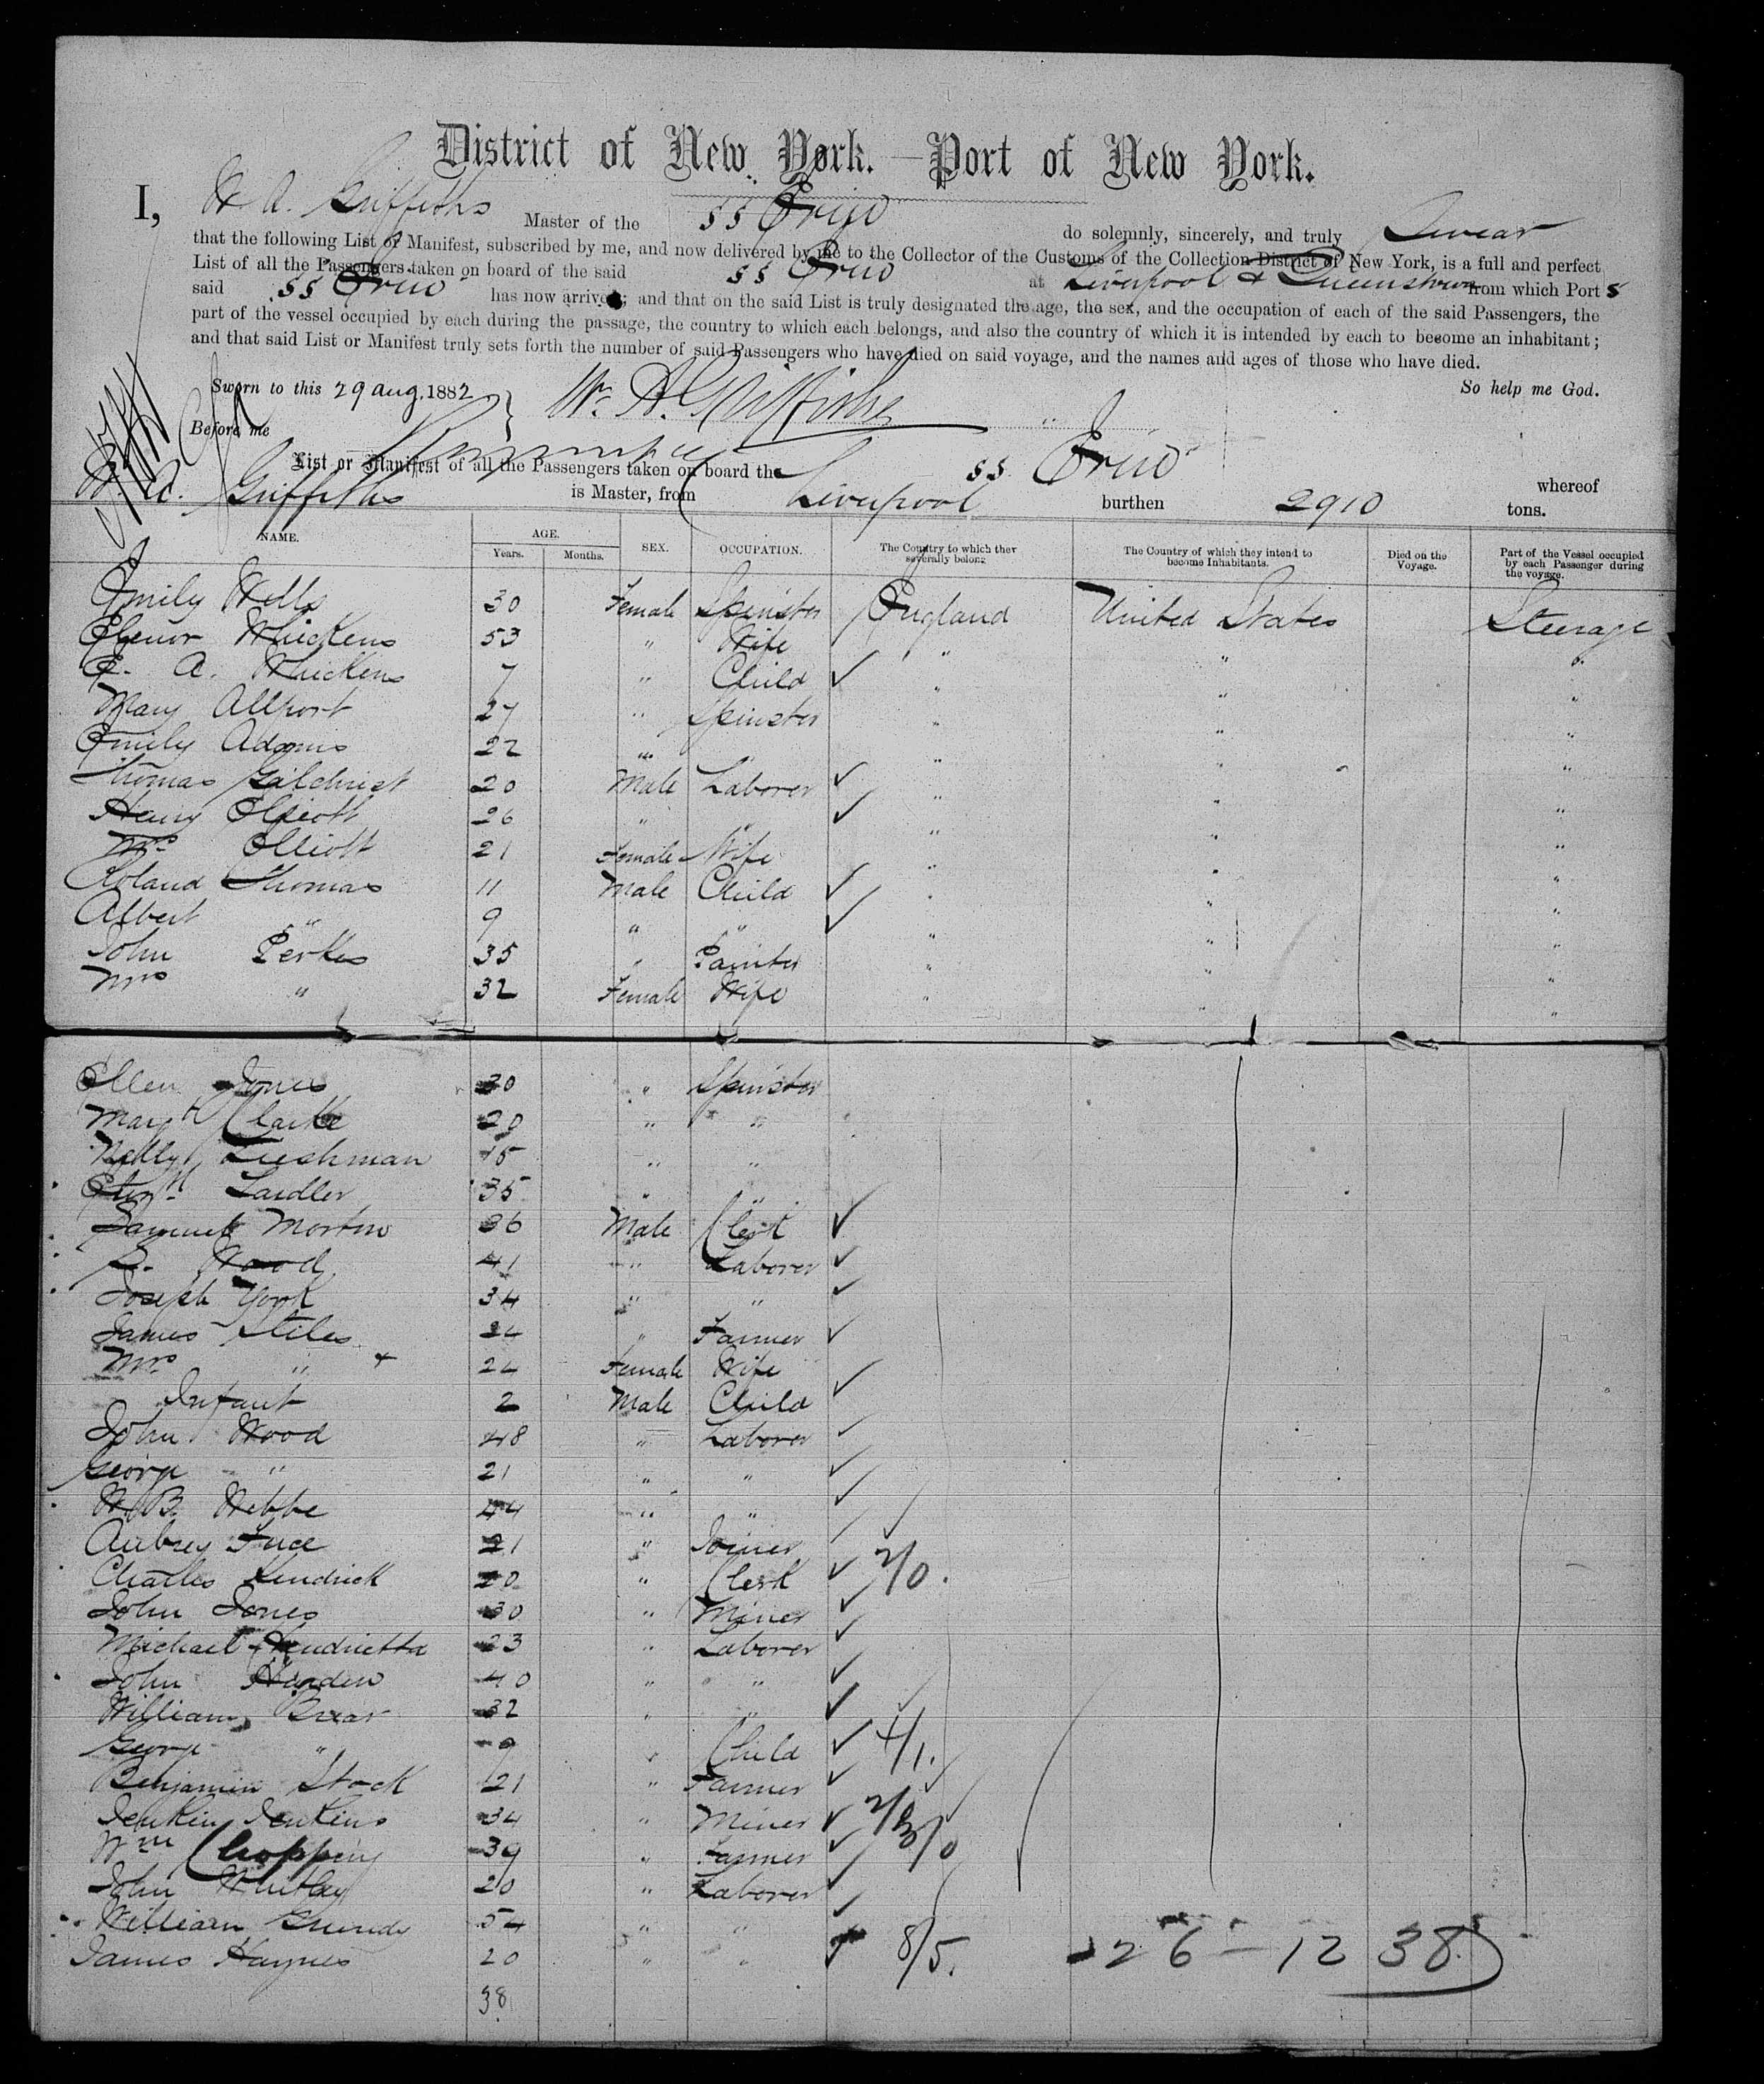 District of New York.—Port of New York.
I, W. A. Griffiths Master of the SS Erin do solemnly, sincerely, and truly Swear
that the following List or Manifest, subscribed by me, and now delivered by me to the Collector of the Customs of the Collection District of New York, is a full and perfect
List of all the Passengers taken on board of the said SS Erin at Liverpool & Queenstown from which Ports
said SS Erin has now arrived; and that on the said List is truly designated the age, the sex, and the occupation of each of the said Passengers, the
part of the vessel occupied by each during the passage, the country to which each belongs, and also the country of which it is intended by each to become an inhabitant;
and that said List or Manifest truly sets forth the number of said Passengers who have died on said voyage, and the names and ages of those who have died.
So help me God.
Sworn to this 29 Aug. 1882 Wm. A. Griffiths
Before me
List or Manifest of all the Passengers taken on board the SS Erin whereof
W. A. Griffiths is Master, from Liverpool burthen 2910 tons.
NAME. AGE. Years. Months. SEX. OCCUPATION. The Country to which they severally belong The Country of which they intend to become Inhabitants. Died on the Voyage. Part of the Vessel occupied by each Passenger during the voyage.
Emily Wells 30 Female Spinster England United States Steerage
Elenor Whickens 53 " Wife " " "
E. A. Whickens 7 " Child ✓ " " "
Mary Allport 27 " Spinster " " "
Emily Adams 22 " " " "
Thomas Gilchrist 20 Male Laborer ✓ " " "
Henry Elliott 26 " " ✓ " " "
Mrs Elliott 21 Female Wife " " "
Roland Thomas 11 Male Child ✓ " " "
Albert " 9 " " ✓ " " "
John Perkes 35 " Painter " " "
Mrs " 32 Female Wife " " "
Ellen Jones 30 " Spinster
Mary Clarke 20 " "
Nelly Lieshman 15 " "
Laidler 35 " "
Samuel Morton 36 Male Clerk ✓
S. Wood 41 " Laborer ✓
Joseph York 34 " " ✓
James Stiles 24 " Farmer ✓
Mrs " + 24 Female Wife
Infant 2 Male Child ✓
John Wood 48 " Laborer ✓
George " 21 " " ✓
W. B. Webbe 44 " " ✓
Aubrey Luce 21 " Joiner ✓
Charles Kendrick 20 " Clerk ✓ 2/0.
John Jones 30 " Miner ✓
Michael Hendrietta 23 " Laborer ✓
John Harden 40 " " ✓
William Briar 32 " " ✓
George " 9 " Child ✓ 4/1.
Benjamin Stock 21 " Farmer ✓
Jenkin Jenkins 34 " Miner ✓
Wm Chopping 39 " Farmer ✓ 3/0
John Whitley 20 " Laborer ✓
William Grundy 54 " " ✓
James Haynes 20 " " ✓ 8/5. 26 — 12 38
38